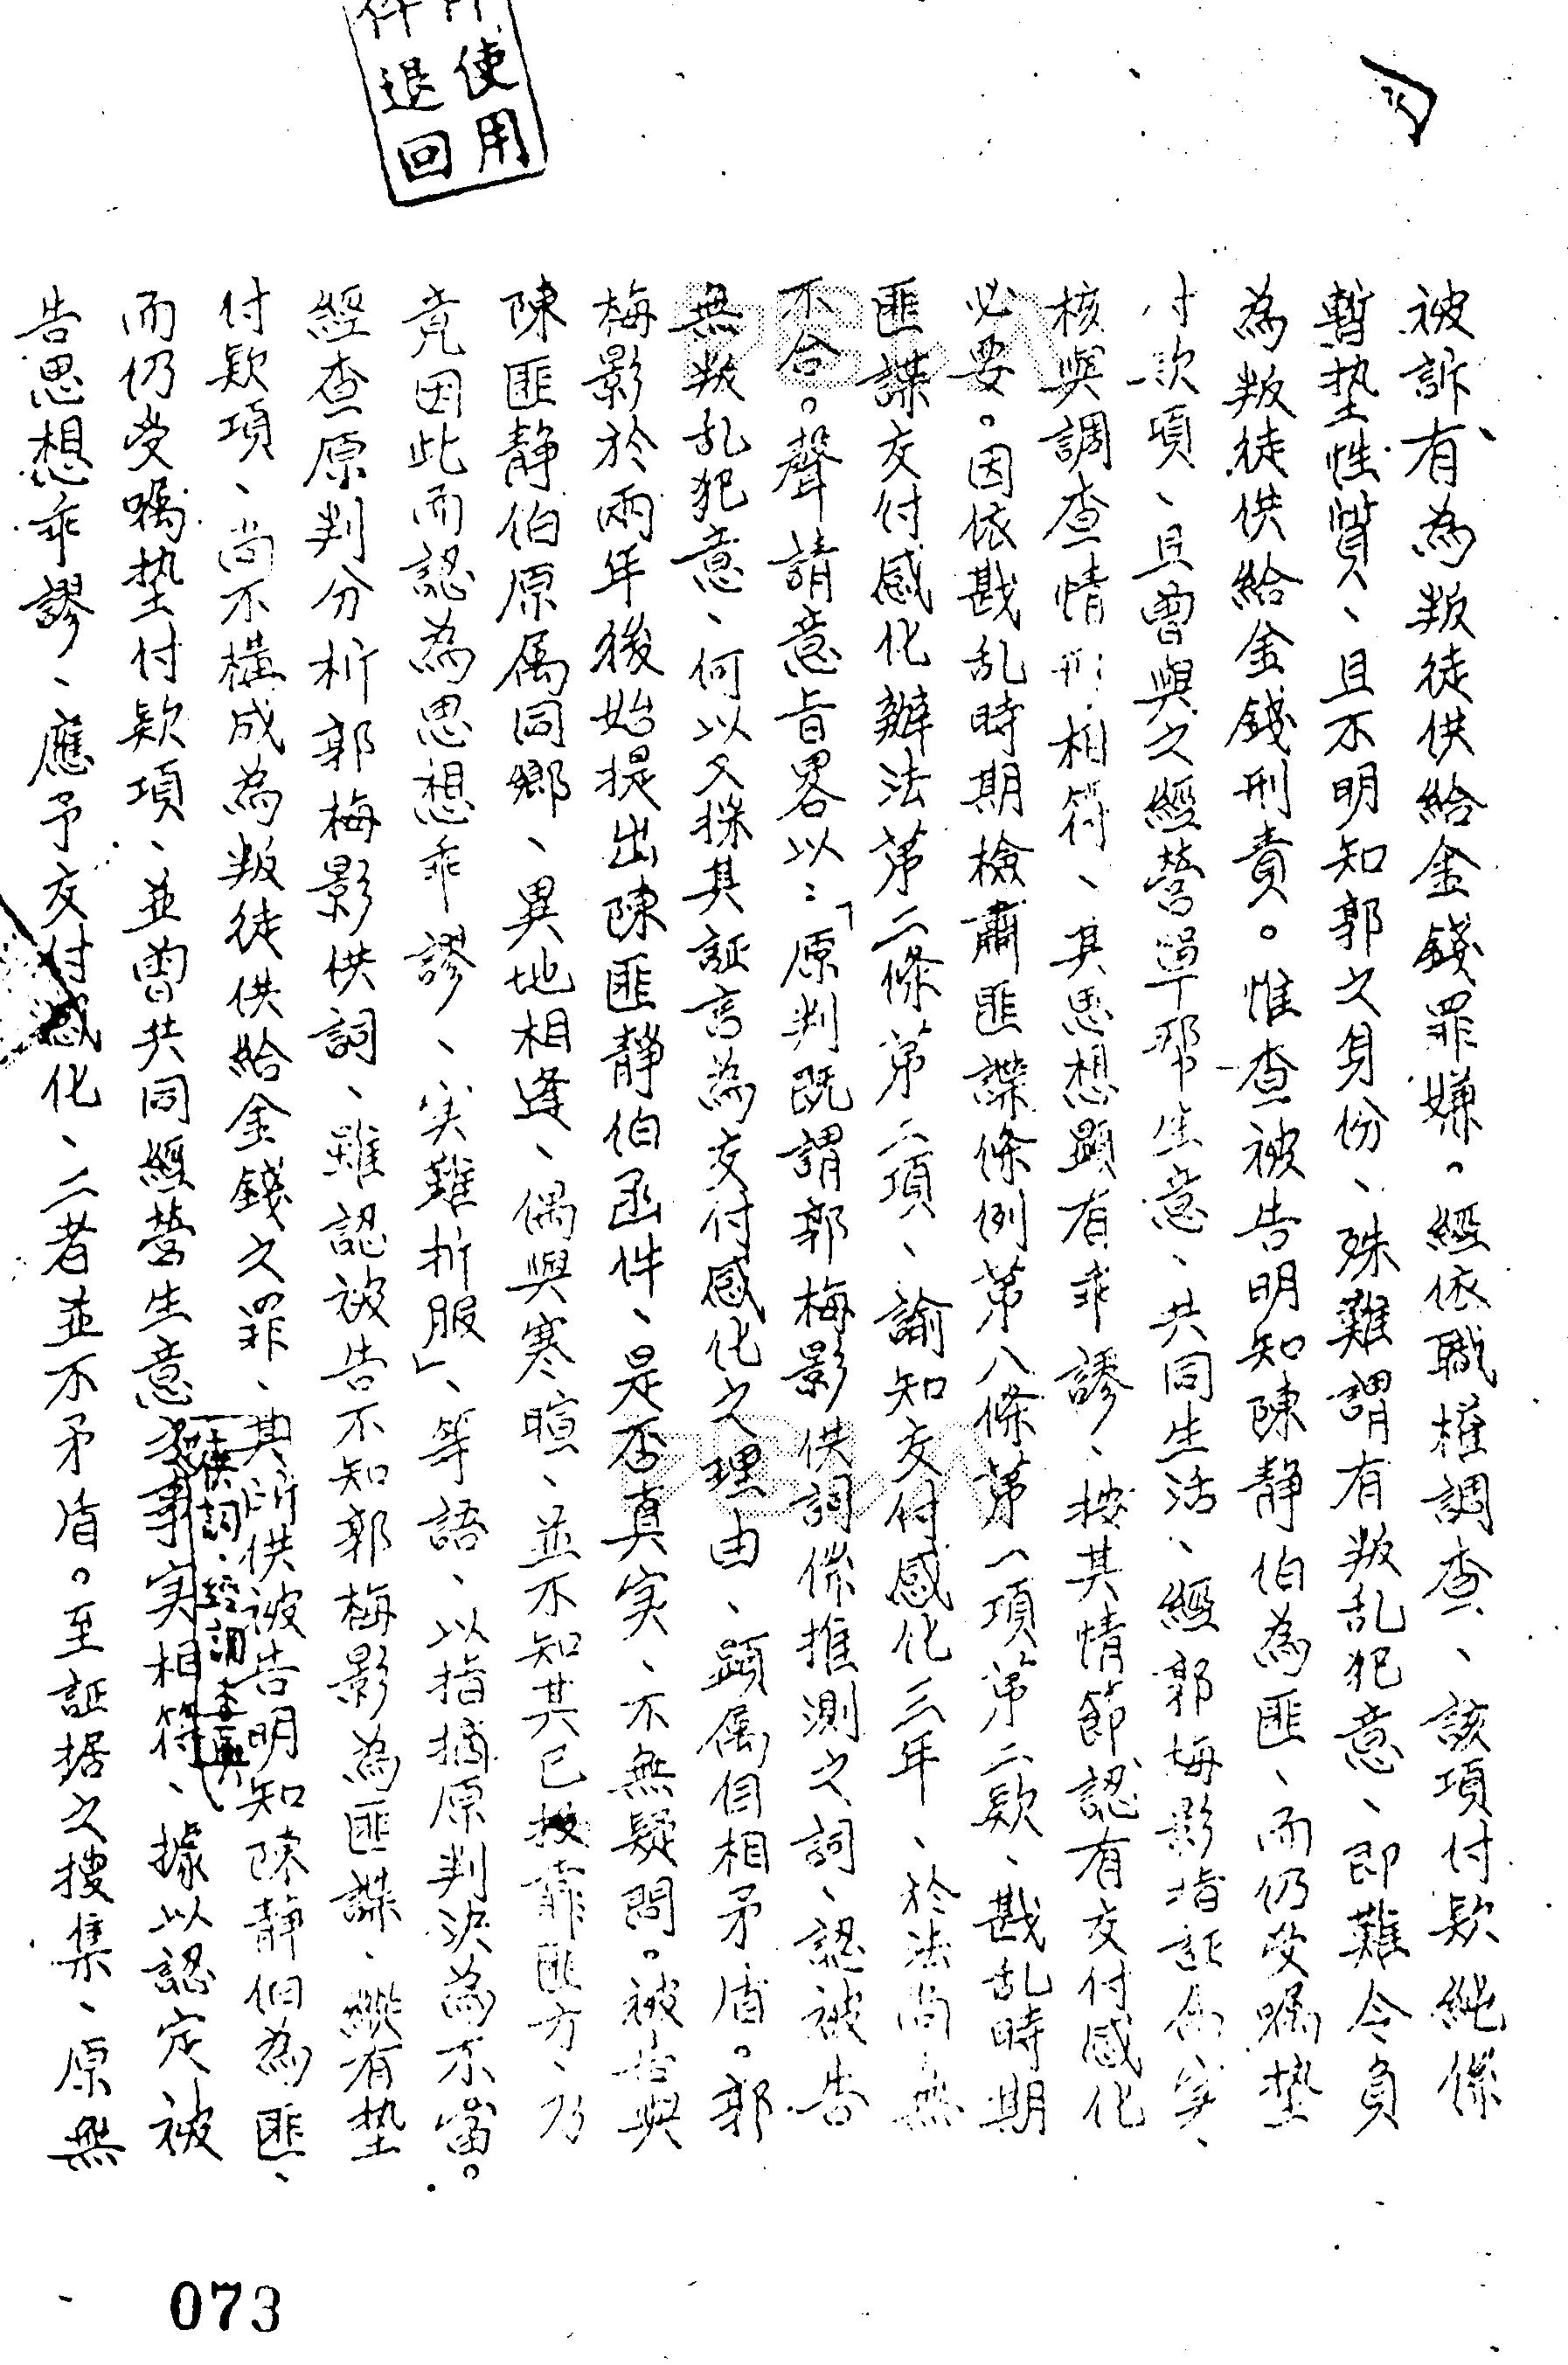 使用
退回
被訴有為叛徒供給金錢罪嫌。經依職權調查、該項付欵純係
暫墊性質、且不明知郭之身份、殊難謂有叛乱犯意、即難令負
為叛徒供給金錢刑責。惟查被告明知陳静伯為匪、而仍受嘱墊
付款項、且曾與之經營單帮生意、共同生活、經郭梅影指証屬实、
核與調查情形相符、其思想顕有乖謬、按其情節認有交付感化
必要。因依戡乱時期檢肅匪諜條例第八條第一項第二欵、戡乱時期
匪諜交付感化辦法第二條第二項、諭知交付感化三年、於法尚無
不合。聲請意旨畧以:「原判既謂郭梅影供詞係推測之詞、認被告
無叛乱犯意、何以又採其証言為交付感化之理由、顕属自相矛盾。郭
梅影於兩年後始提出陳匪静伯函件、是否真实、不無疑問。被告與
陳匪静伯原属同鄉、異地相逢、偶與寒暄、並不知其已投靠匪方、乃
竟因此而認為思想乖謬、实難折服」、等語、以指摘原判決為不當。
經查原判分析郭梅影供詞、雖認被告不知郭梅影為匪諜、縱有墊
付欵項、尚不構成為叛徒供給金錢之罪、其所供被告明知陳静伯為匪、
而仍受嘱墊付欵項、並曾共同經營生意之供詞、經調查與事实相符、據以認定被
告思想乖謬、應予交付感化、二者並不矛盾。至証据之搜集、原無
073